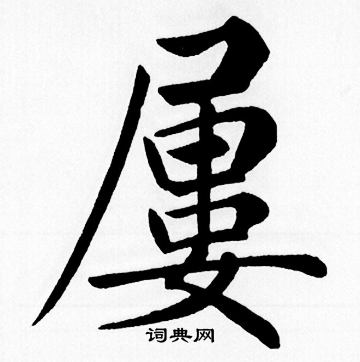 屢
词典网